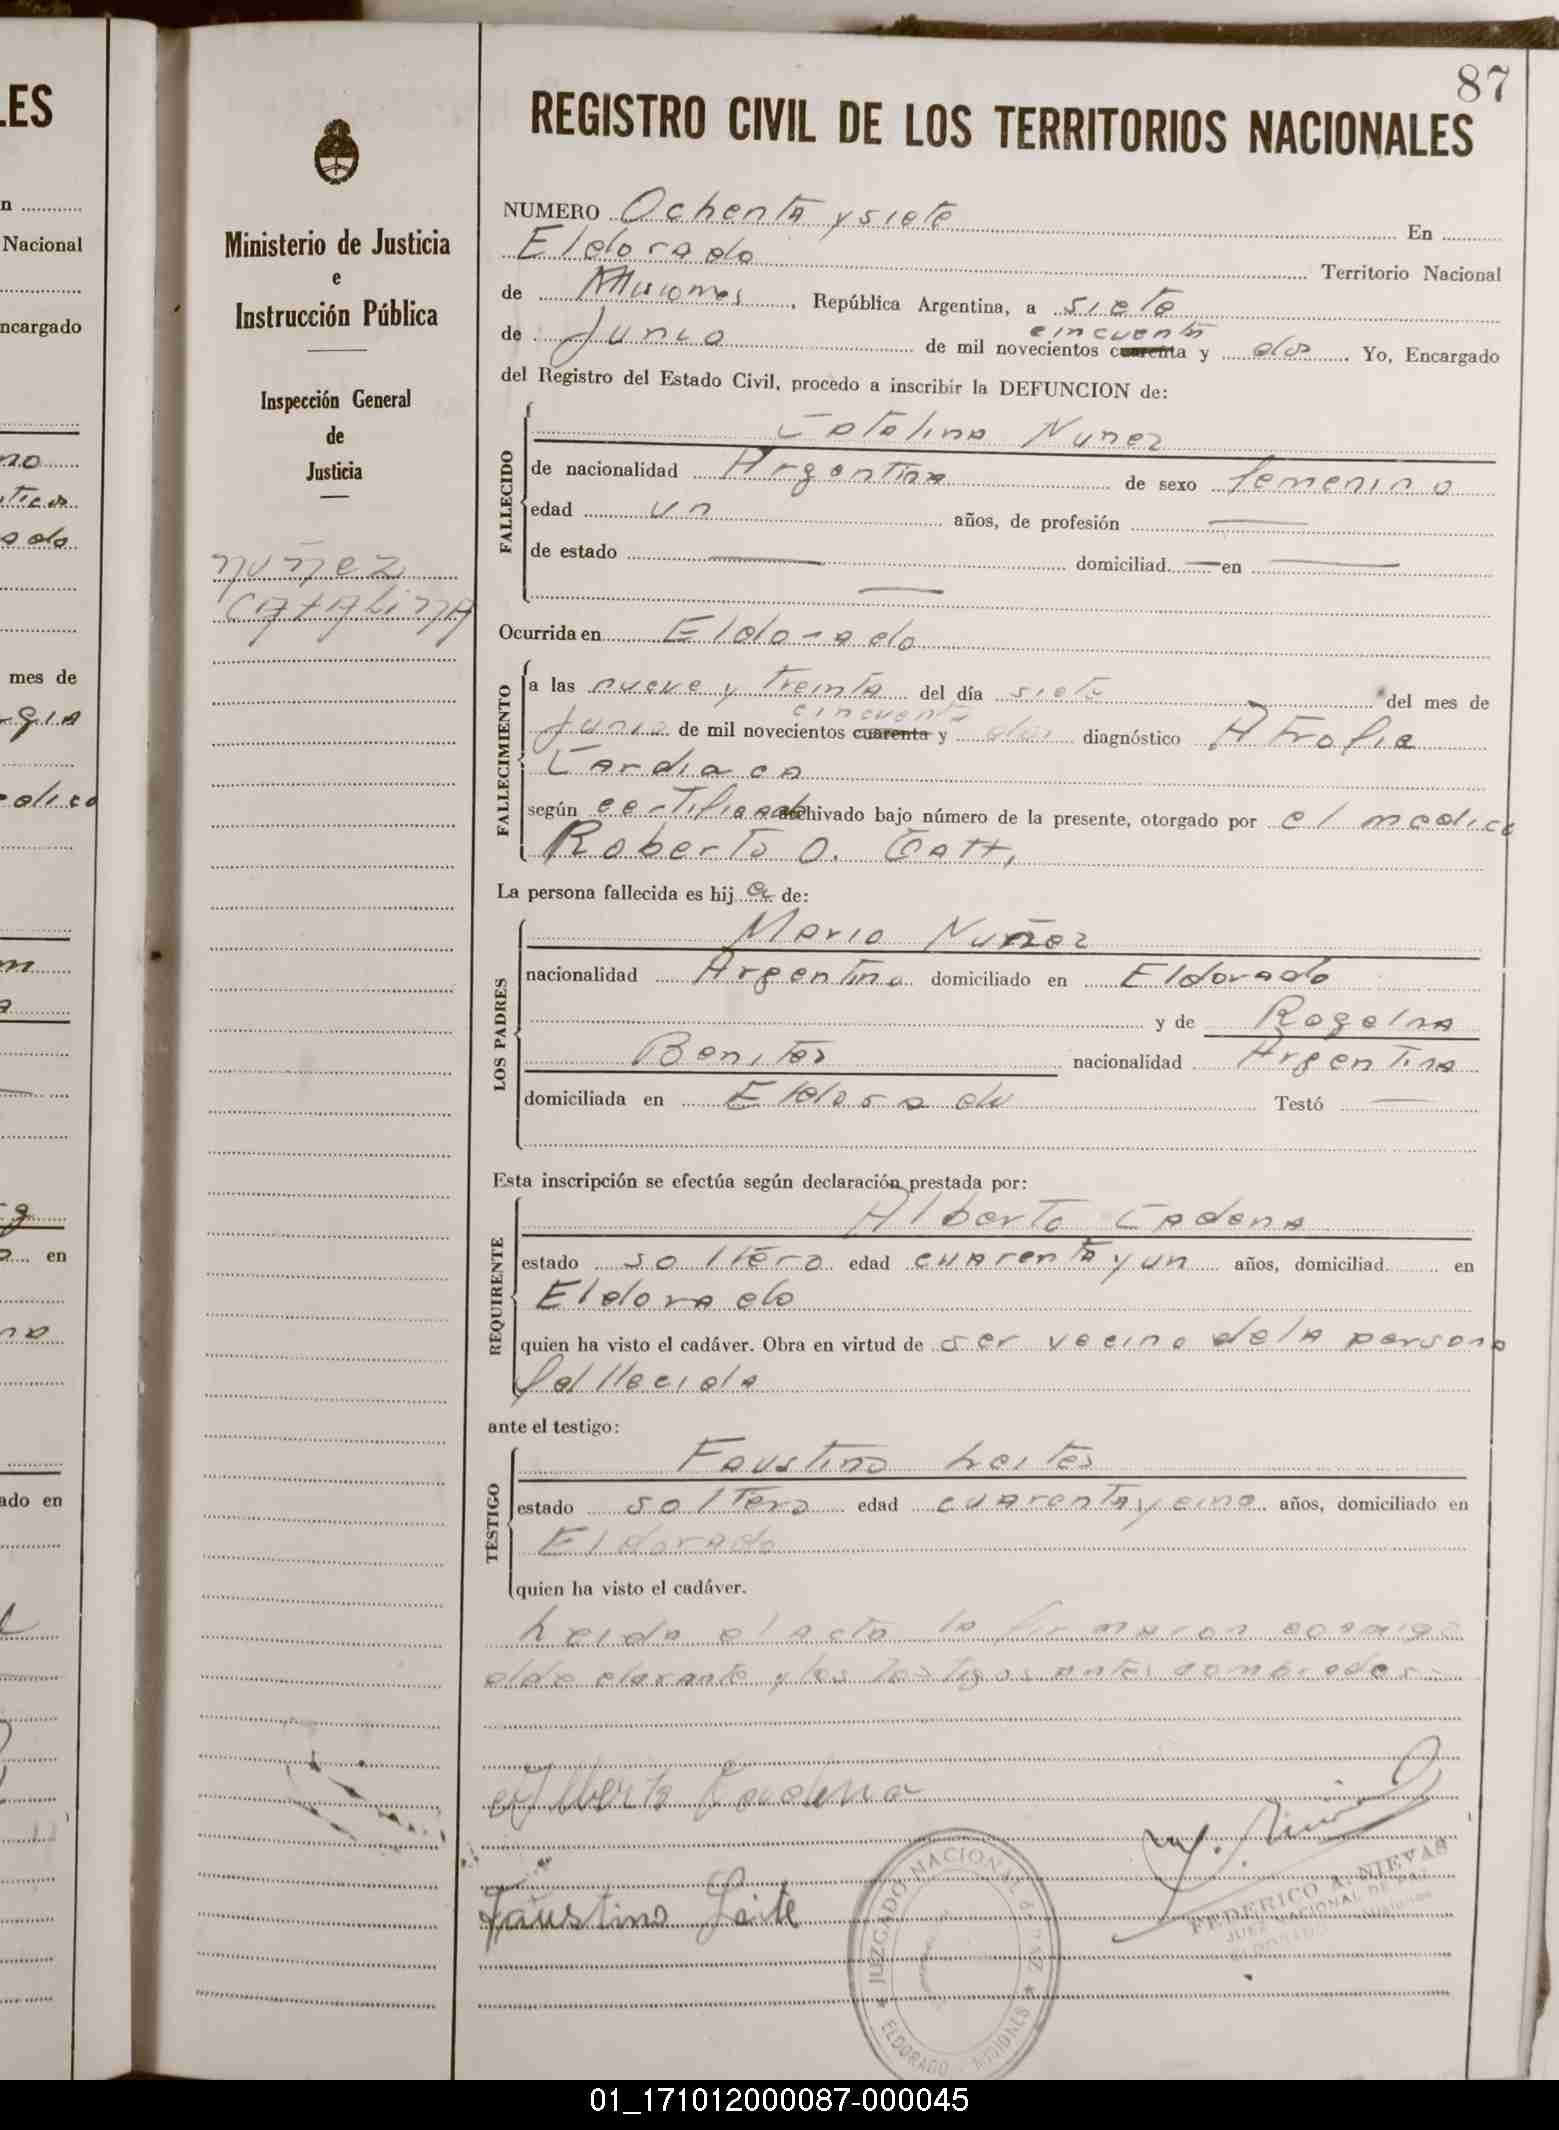 87
REGISTRO CIVIL DE LOS TERRITORIOS NACIONALES
Ministerio de Justicia
e
Instrucción Pública
Inspección General
de
Justicia
nuñez
CATALINA
NUMERO Ochenta y siete En
Eldorado Territorio Nacional
de Misiones, República Argentina, a siete
cincuenta
de Junio de mil novecientos cuarenta y dos. Yo, Encargado
del Registro del Estado Civil, procedo a inscribir la DEFUNCION de:
FALLECIDO
Catalina Nunez
de nacionalidad Argentina de sexo femenino
edad un años, de profesión
de estado domiciliad en
Ocurrida en Eldorado
FALLECIMIENTO
a las nueve y treinta del día siete del mes de
cincuenta
Junio de mil novecientos cuarenta y dos diagnóstico Atrofia
Cardiaca
según certificado archivado bajo número de la presente, otorgado por el medico
Roberto O.
La persona fallecida es hija de:
LOS PADRES
Mario Nuñez
nacionalidad Argentino domiciliado en Eldorado
y de Rogelia
Benites nacionalidad Argentina
domiciliada en Eldorado Testó
Esta inscripción se efectúa según declaración prestada por:
REQUIRENTE
Alberto Cadena
estado soltero edad cuarenta y un años, domiciliad en
Eldorado
quien ha visto el cadáver. Obra en virtud de ser vecino de la persona
fallecida
ante el testigo:
TESTIGO
Faustino Leites
estado soltero edad cuarenta y cinco años, domiciliado en
Eldorado
quien ha visto el cadáver.
Leida el acta la firmaron conmigo
el declarante y los testigos antes nombrados
Alberto Cadena
Faustino Leite
JUZGADO NACIONAL DE PAZ
ELDORADO - MISIONES
FEDERICO A. NIEVAS
JUEZ NACIONAL DE PAZ
ELDORADO
LES
n
Nacional
ncargado
mes de
en
ado en
01_171012000087-000045